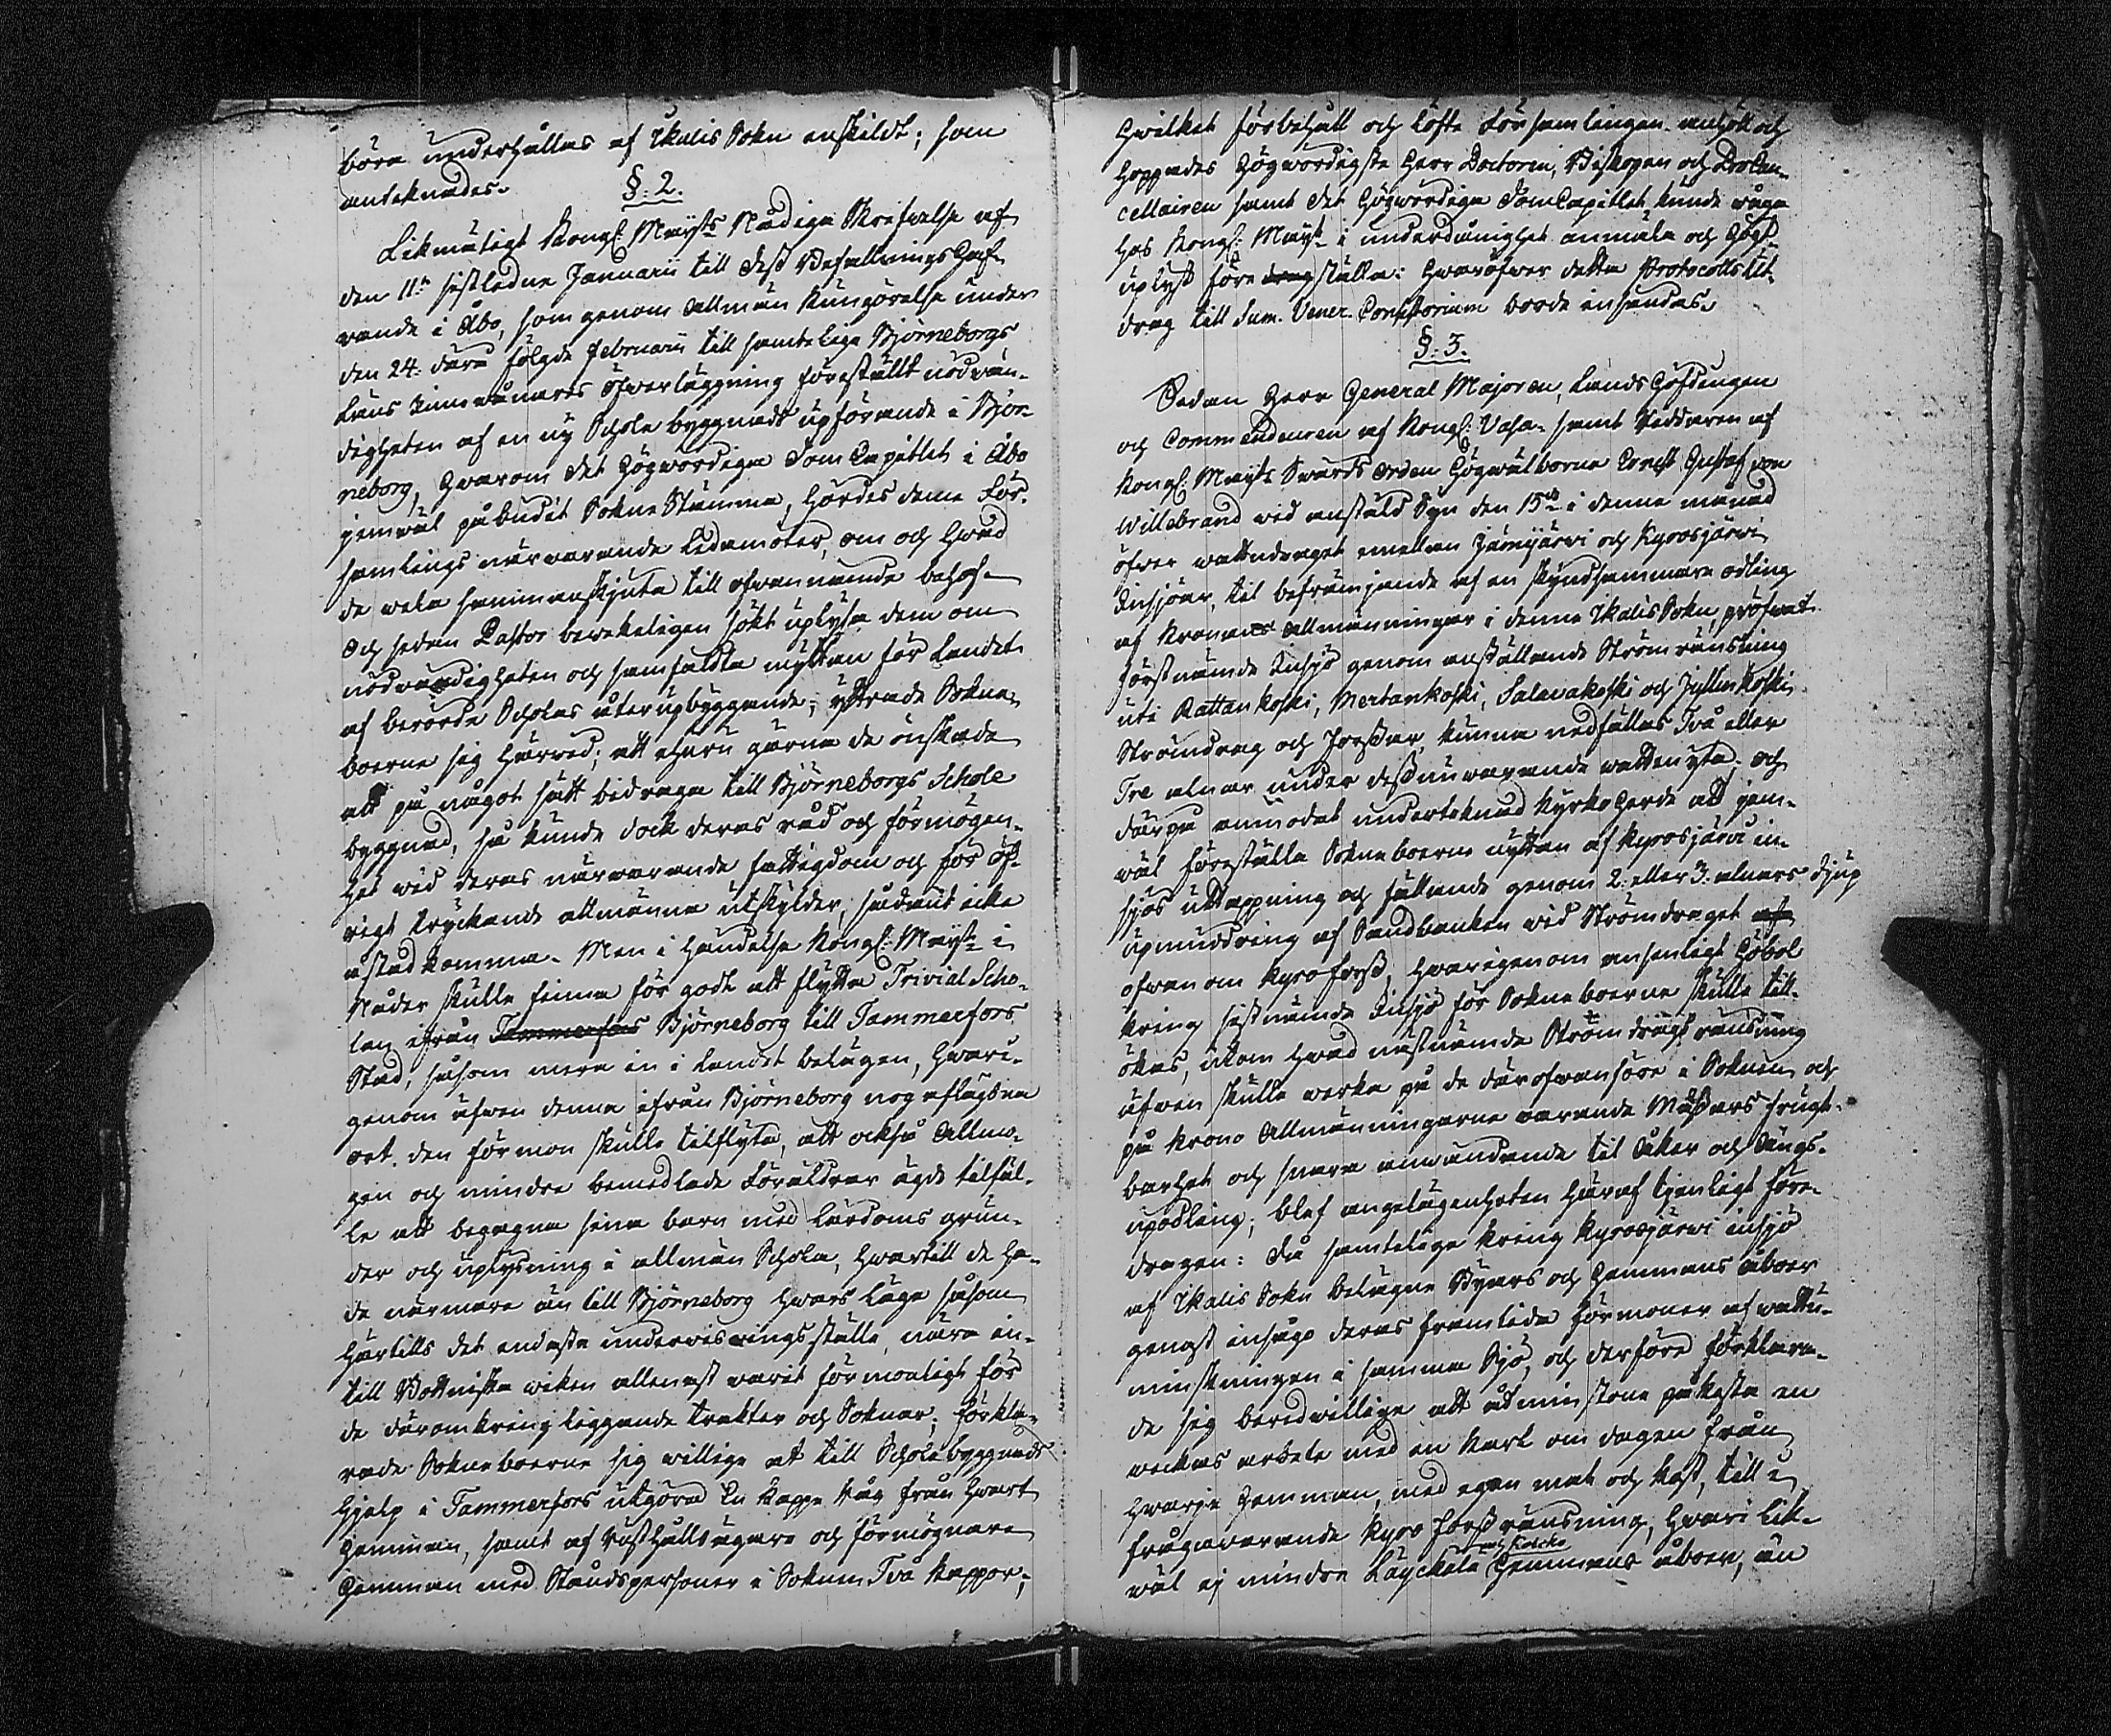 böra underhållas af Ikalis Sokn enskildt; som
anteknades.
§. 2.
Likmätigt Kongl: Maÿts Nådiga Skrifvelse af
den 11te sistledne Januarii till dess Befallningshaf-
vande i Åbo, som genom allmän Kungörelse under
den 24. därå följde Februarii till samtelige Björneborgs
Läns Innevånares öfverläggning föreställt nödvän-
digheten af en nÿ Schole byggnads upförande i Björ-
neborg, hvarom det Högvördiga DomCapitlet i Åbo
jemväl påbudit SokneStämma, hördes denne För-
samlings närvarande Ledamöter, om och hvad
de wela sammanskjuta till ofvannämde behof.
Och sedan Pastor bevekeligen sökt uplysa dem om
nödvändigheten och samfäldta nÿttan för Landet
af berörde Scholas återupbyggande; ÿttrade Sokne-
boerne sig härvid; att ehuru gärna de önskade
att på något sätt bidraga till Björneborgs Schole
byggnad, så kunde dock deras råd och förmögen-
het wid deras närvarande fattigdom och för öf-
rigt tryckande allmänna utskylder, sådant icke
åstadkomma. Men i händelse Kongl: Maÿt i
Nåder skulle finna för godt att flytta Trivial Scho-
lan ifrån Tammerfors Björneborg till Tammerfors
Stad, såsom mera in i Landet belägen, hvari-
genom äfven denna ifrån Björneborg nog aflägsna
ort. den förmon skulle tilflyta, att också Allmo-
gen och mindre bemedlade Föräldrar ägde tilfäl-
le att begagna sina barn med lärdoms grun-
der och uplysning i allmän Schola, hvartill de ha-
de närmare än till Björneborg hvars läge såsom
härtills det endaste undervisningsställe, nära in-
till Bottniska wiken allenast varit förmonligt för
de däromkring liggande trakter och Soknar; förkla-
rade Sokneboerne sig willige at till Scholebyggnads
hjelp i Tammerfors utgöra En Kappe Råg från hvart
Hemman, samt af Rusthållsägare och förmögnare
Hemman med Ståndspersoner i Soknen Två Kappor;
hvilket förbehåll och löfte Församlingen anhöll och
hoppades Högwördigste Herr Doctorn, Biskopen och ProCan-
cellairen samt det Högwördiga DomCapitlet kunde wåga
hos Kongl: Maÿt i underdånighet anmäla och Högst-
uplyst före drag ställa: hvaröfver detta Protocolls Ut-
drag till Sum. Vener. Consistorium borde insändas.
§. 3.
Sedan Herr General Majoren, LandsHöfdingen
och Commendeuren af Kongl: Vasa- samt Riddaren af
Kongl: Maÿts Swärds Orden Högwälborne Ernst Gustaf von
Willebrand wid anstäld Syn den 15de i denne månad
öfver wattudraget emellan Jämijärwi och Kyrosjärwi
Insjöar, til befrämjande af en skyndsammare odling
af Kronans Allmänningar i denne Ikalis Sokn, pröfvat
förstnämde Insjö genom anställande Strömränsning
uti Rattankoski, Mertankoski, Salavakoski och Jyllinkoski
Strömdrag och Forssar, kunna nedfällas Två eller
Tre alnar under dess nuwarande wattenyta och
därpå anmodat underteknad Kyrkoherde att jem-
wäl föreställa Sokneboerne nyttan af Kyrosjärwi in-
sjös uttappning och fällande genom 2: eller 3: alnars djup
upmuddring af Sandbanken wid Strömdraget af
ofvanom Kyrofors, hvarigenom ansenligt Höbol
kring sistnämde Insjö för Sokneboerne skulle till-
ökas, utom hvad nästnämde Strömdrags ränsning
äfven skulle werka på de därofvanföre i Soknen och
på Krono Allmänningarne warande Måssars frugt-
barhet och snara användande til Åker och Ängs-
upodling; blef angelägenheten häraf tjenligt före-
dragen: då samtelige kring Kyrosjärwi insjö
af Ikalis Sokn belägne Byars och Hemmans åboer
genast insågo deras framtida förmoner af wattu-
minskningen i samma Sjö, och derföre förklara-
de sig beredwillige att åtminstone påkosta en
weckas arbete med en Karl om dagen från
hvarje Hemman, med egen mat och kost, till i
frågavarande Kyro Forss ränsning, hvari lik-
wäl ej mindre Läyckälä Hemmans åboer, än